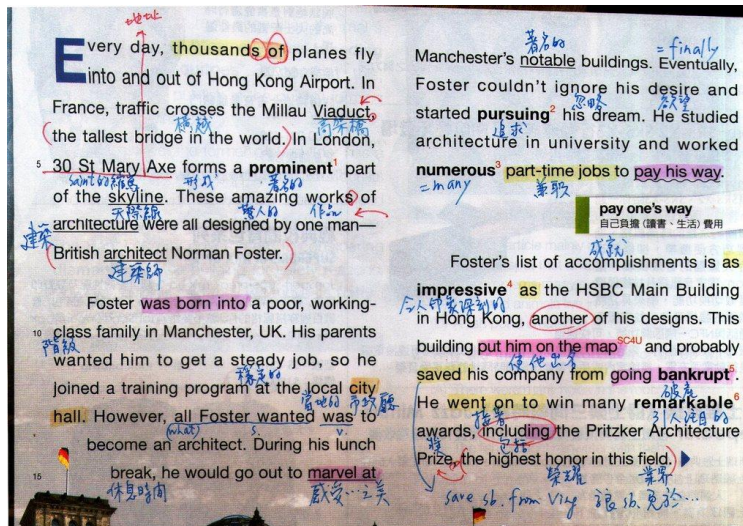 地址
Every day, thousands of planes fly
into and out of Hong Kong Airport. In
France, traffic crosses the Millau Viaduct,
橋樑 高架橋
(the tallest bridge in the world.) In London,
5 30 St Mary Axe forms a prominent¹ part
saint的縮寫 形成 著名的
of the skyline. These amazing works of
天際線 驚人的 作品
建築 architecture were all designed by one man—
(British architect Norman Foster.)
建築師
Foster was born into a poor, working-
10 class family in Manchester, UK. His parents
階級
wanted him to get a steady job, so he
穩定的
joined a training program at the local city
當地的 市政廳
hall. However, all Foster wanted was to
(what) s. v.
become an architect. During his lunch
15 break, he would go out to marvel at
休息時間 感受…之美
著名的 = finally
Manchester's notable buildings. Eventually,
Foster couldn't ignore his desire and
忽略 慾望
started pursuing² his dream. He studied
追求
architecture in university and worked
numerous³ part-time jobs to pay his way.
= many 兼職
pay one's way
自己負擔(讀書、生活)費用
成就
Foster's list of accomplishments is as
impressive⁴ as the HSBC Main Building
令人印象深刻的
in Hong Kong, another of his designs. This
building put him on the map SC4U and probably
使他出名
saved his company from going bankrupt⁵.
破產
He went on to win many remarkable⁶
接著 引人注目的
awards, including the Pritzker Architecture
獎 包括
Prize, the highest honor in this field.)
榮耀 業界
save sb. from Ving 讓 sb. 免於…